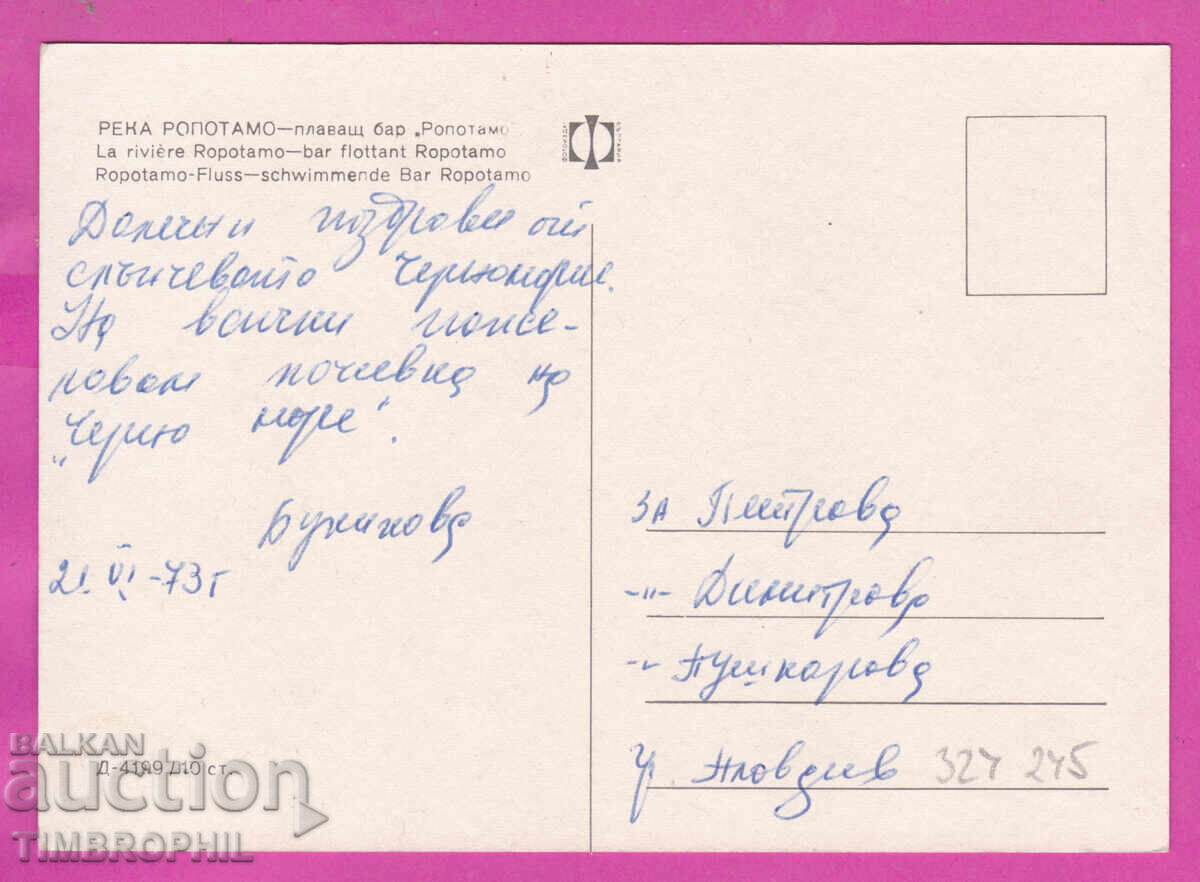 РЕКА РОПОТАМО—плаващ бар „Ропотамо
La rivière Ropotamo—bar flottant Ropotamo
Ropotamo-Fluss—schwimmende Bar Ropotamo
Далечни поздрави от
слънчевото Черноморие.
На всички поже-
лавам почивка на
„Черно море".
21. VI -73 г
За Петрова
-"- Димитрова
-"- Пушкарова
гр. Пловдив 324 245
Д-4199/10 ст.
BALKAN
auction
TIMBROPHIL